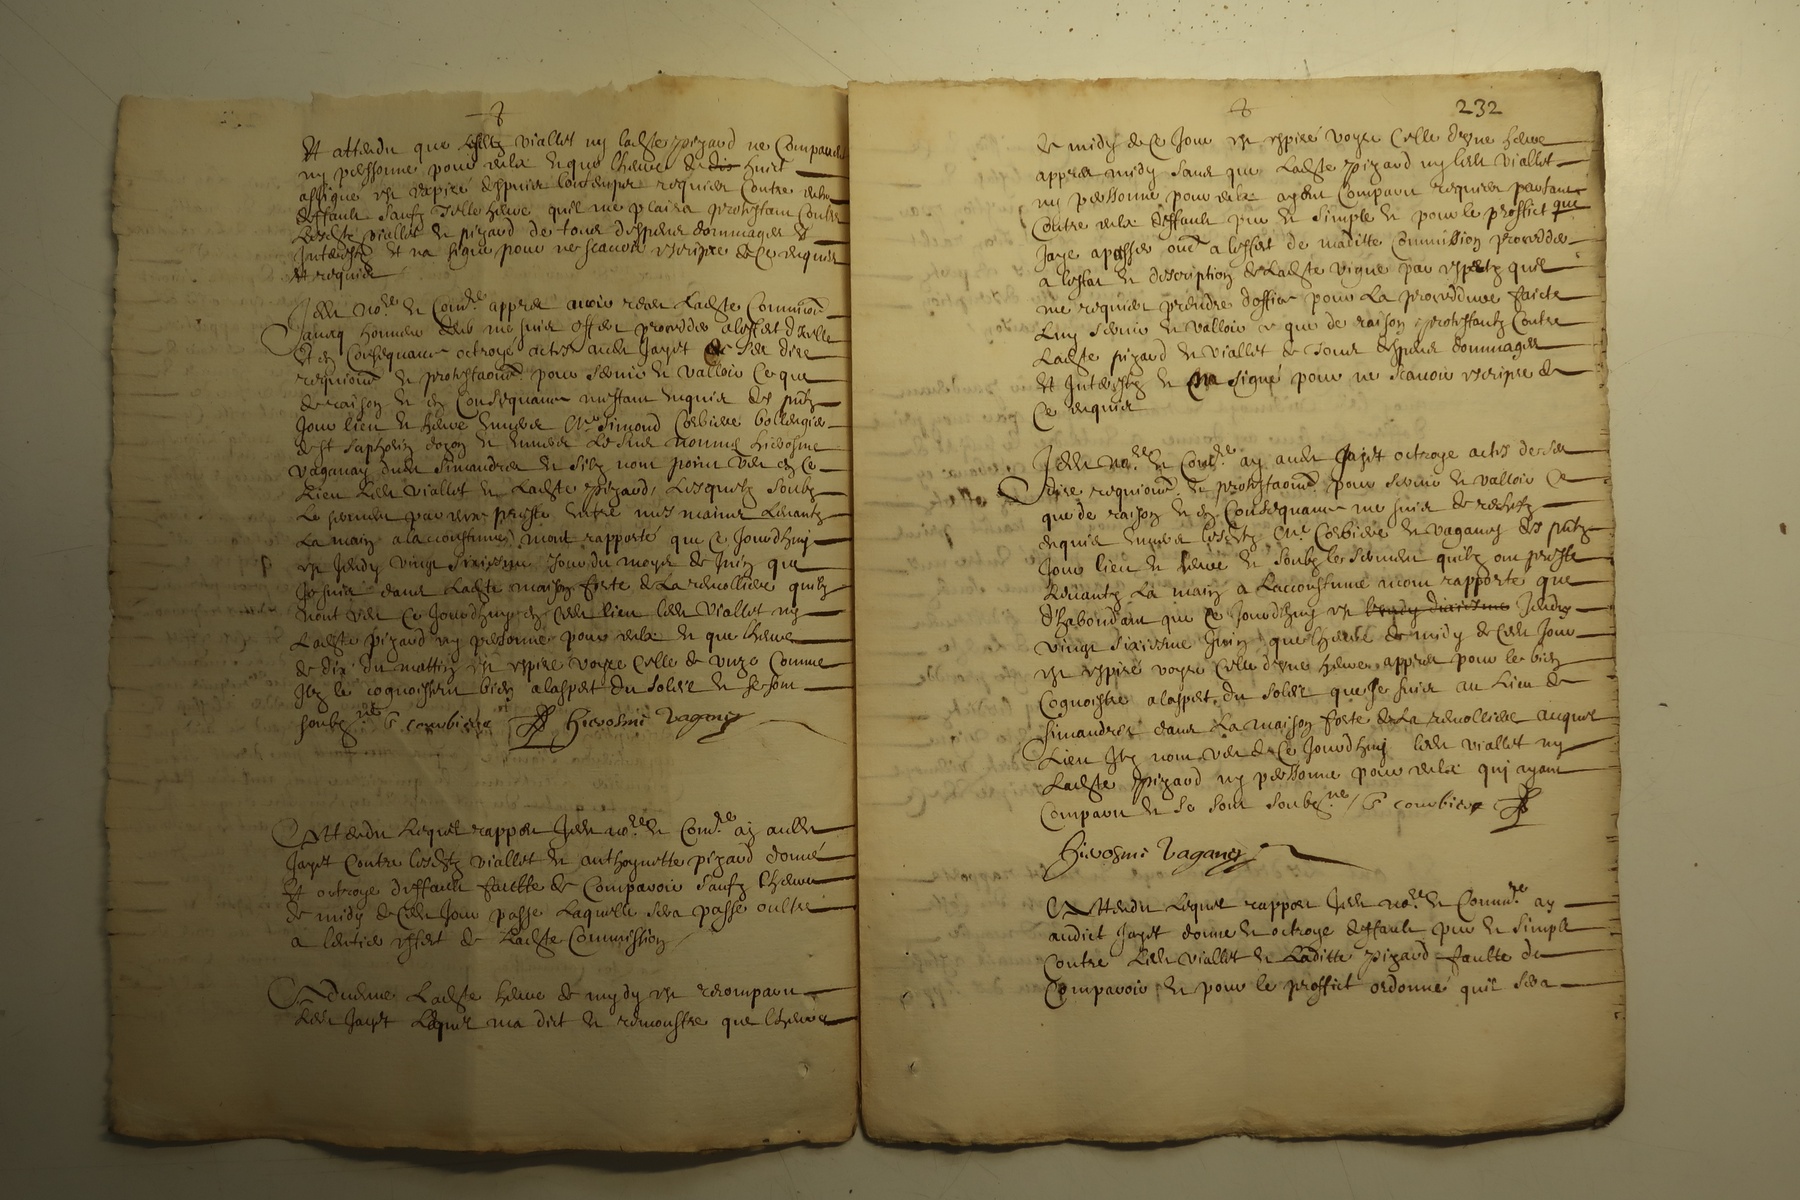 Et attendu que lesdtz viallet ny ladste pizard ne Comparent
ny personne pour eulx et que lheure de dix huict
assigne est expire despuis longtemps requier Contre eulx
deffault saufz telle heure quil me plaira protestant Contre
lesdtz viallet et pizard de tous despens dommages et
Interestz Et na signe pour ne scavoir escripre de ce enquis
et requis
Je dit no.re et Com.re appres avoir receu ladste Commion
avecq honneur deub me suis offert proceder a leffect dicelle
Et en Consequance octroyé actes audit Jayet de ses dire
requions et protestaons pour servir et valloir Ce que
de raison et en Consequance mestant enquis des putz
Jour lieu et heure envers Me Simond Corbiere bollengier
de st saphorin dozon et envers le sieur nommé hierosme
vaganay dudit Simandres et silz nont point veu en ce
lieu ledit viallet et ladste pizard, lesquelz soubz
le serment par eux preste entre mes mains levantz
la main a laccoustumé mont rapporté que ce Jourdhuy
est Jeudy vingt sixiesme Jour du moys de Juin que
Je suis dans ladste maison forte de la remolliere quilz
nont veu ce Jourdhuy en cedit lieu ledit viallet ny
ladste pizard ny personne pour eulx et que lheure
de dix du mattin est expire voyre celle de unze comme
Ilz le cognoissent bien a laspect du soleil et se sont
soubz.nes S corbiere hierosme vaganey
Attendu lequel rapport Je dit no.re et Com.re ay audit
Jayet Contre lesdtz viallet et anthoynette pizard donné
Et octroye deffault faultte de Comparoir saufz lheure
de midy de cedit Jour passe laquelle sera passe oultre
a lentier effect de ladste Commission
Advenue ladste heure de mydy est recomparu
ledit Jayet lequel ma dict et remonstre que lheure
232
de midy de ce Jour est expiré voyre celle dune heure
appres midy sans que ladste pizard ny ledit viallet
ny personne pour eulx ayent Comparu requiert partant
Contre eulx deffault pur et simple et pour le proffict que
Jaye a passer oultre a leffect de maditte Commission proceder
a lestat et description de ladste vigne par expertz quil
me requiert prendre doffice pour la procedure faicte
luy servir et valloir ce que de raison protestantz Contre
ladste pizard et viallet de tous despens dommages
Et Interestz et na signé pour ne scavoir escripre de
ce enquis
Je dit no.re et Com.re ay audit Jayet octroye actes de ses
dire requions et protestaons pour servir et valloir ce
que de raison et en Consequance me suis de rechefz
enquis envers lesdtz Me Corbiere et vaganey des putz
Jour lieu et heure et soubz le serment quilz ont preste
levantz la main a laccoustumé mont rapporte que
dhabondant que ce Jourdhuy est Jeudy
vingt sixiesme Juin que lheure de midy de cedit Jour
est expiré voyre celle dune heure appres pour le bien
Cognoistre a laspect du soleil que Je suis au lieu de
simandres dans la maison forte de la remolliere auquel
lieu Ilz nont veu de ce Jourdhuy ledit viallet ny
ladste pizard ny personne pour eulx qui ayent
comparu et se sont soubz.nes S corbiere
hierosme vaganey
Attendu lequel rapport Je dit no.re et Comm.re ay
audict Jayet donné et octroye deffault pur et simple
contre ledit viallet et laditte pizard faulte de
Comparoir, et pour le proffict ordonné quil sera